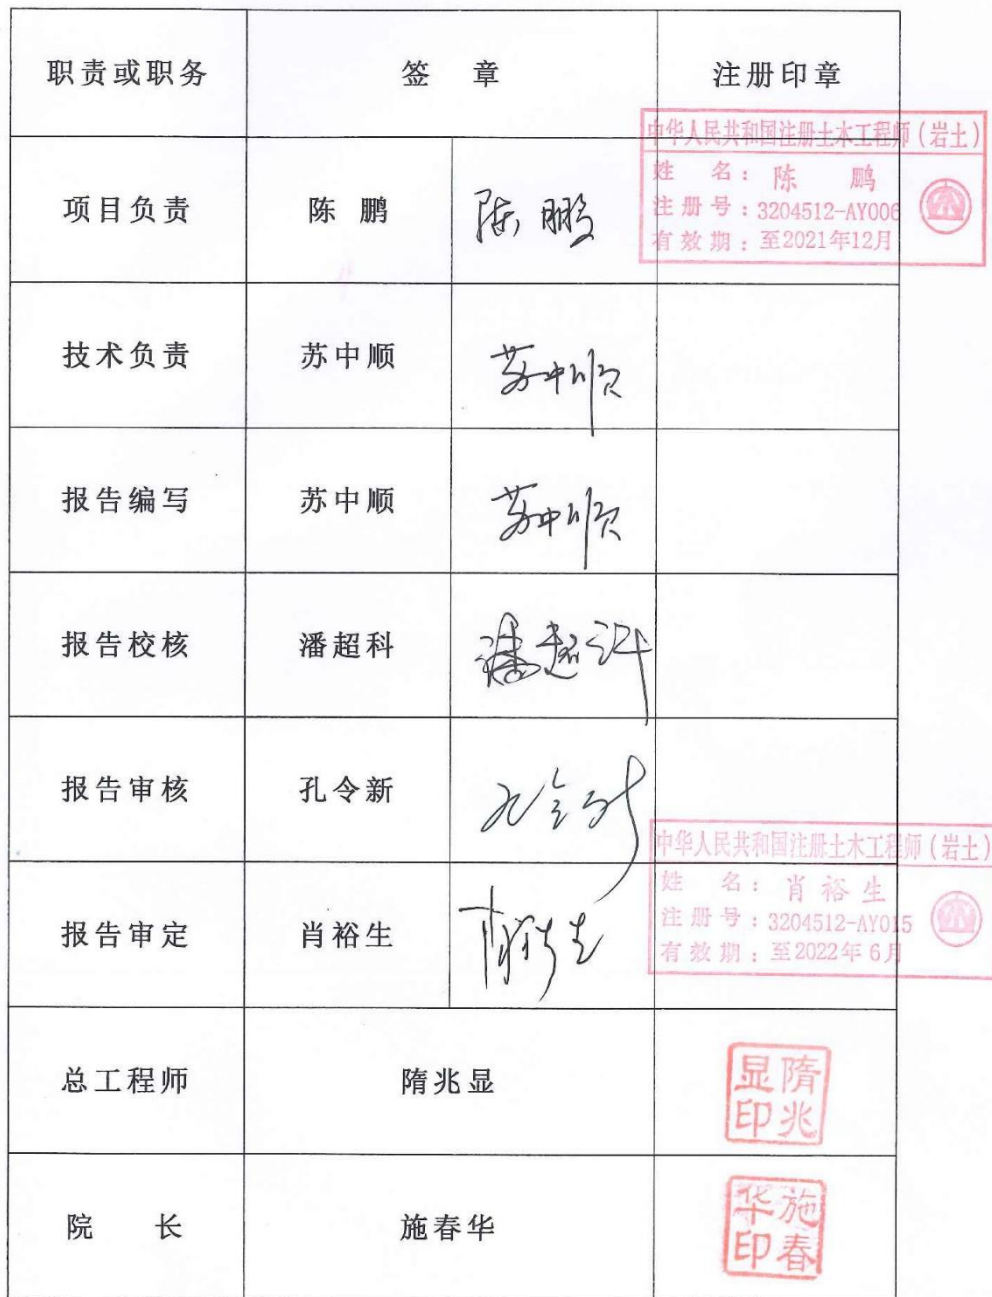 职责或职务 签 章 注册印章
中华人民共和国注册土木工程师(岩土)
姓 名: 陈 鹏
注册号:3204512-AY006
有效期:至2021年12月
项目负责 陈 鹏 陈鹏
技术负责 苏中顺 苏中顺
报告编写 苏中顺 苏中顺
报告校核 潘超科 潘超科
报告审核 孔令新 孔令新
中华人民共和国注册土木工程师(岩土)
姓 名: 肖裕生
注册号:3204512-AY015
有效期:至2022年6月
报告审定 肖裕生 肖裕生
总工程师 隋兆显 隋兆显印
院 长 施春华 施春华印